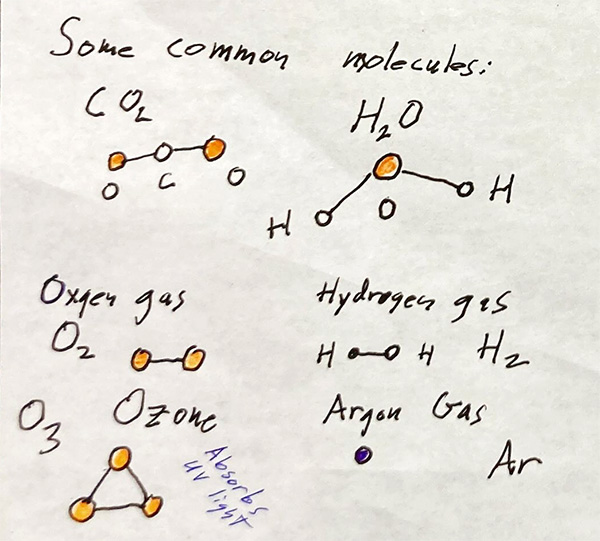 Some common molecules:
CO₂
O C O
H₂O
H O H
Oxygen gas
O₂
Hydrogen gas
H H H₂
O₃ Ozone
Absorbs
UV light
Argon Gas
Ar